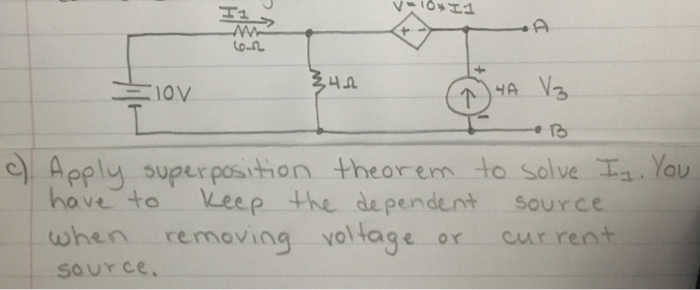 I1
V=10*I1
+ -
A
6Ω
4Ω
10V
+
4A
V3
-
B
c) Apply superposition theorem to solve I1. You
have to keep the dependent source
when removing voltage or current
source.